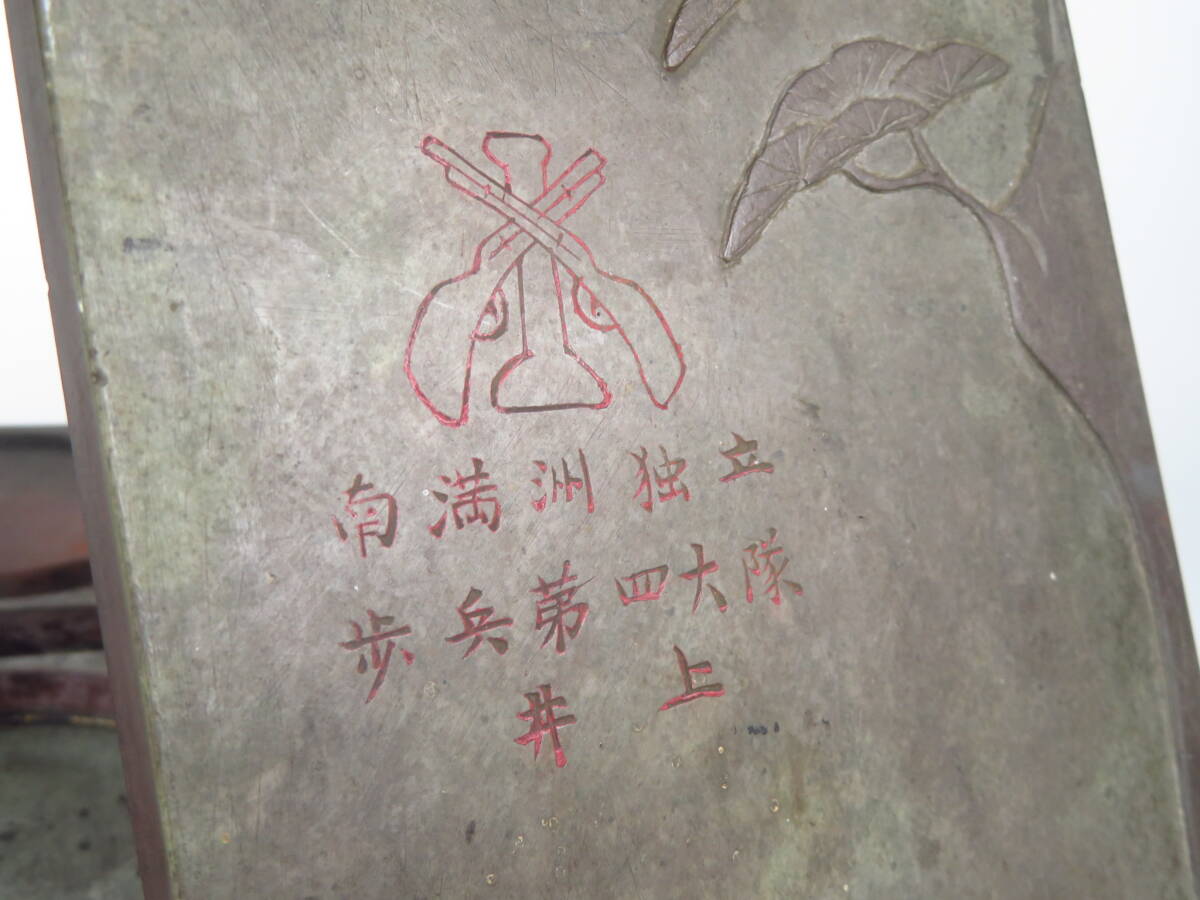 南満洲独立
歩兵第四大隊
井上